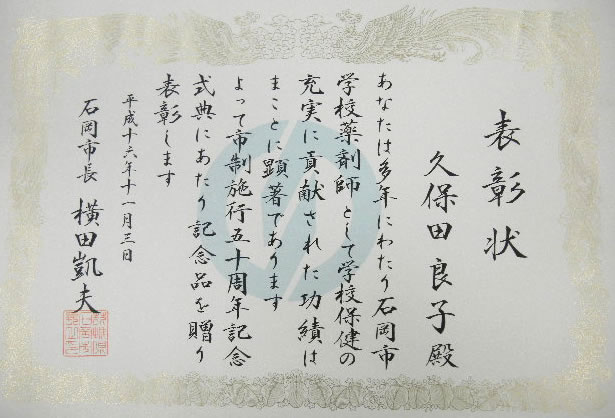 表彰状
久保田良子殿
あなたは多年にわたり石岡市
学校薬剤師として学校保健の
充実に貢献された功績は
まことに顕著であります
よって市制施行五十周年記念
式典にあたり記念品を贈り
表彰します
平成十六年十一月三日
石岡市長 横田凱夫